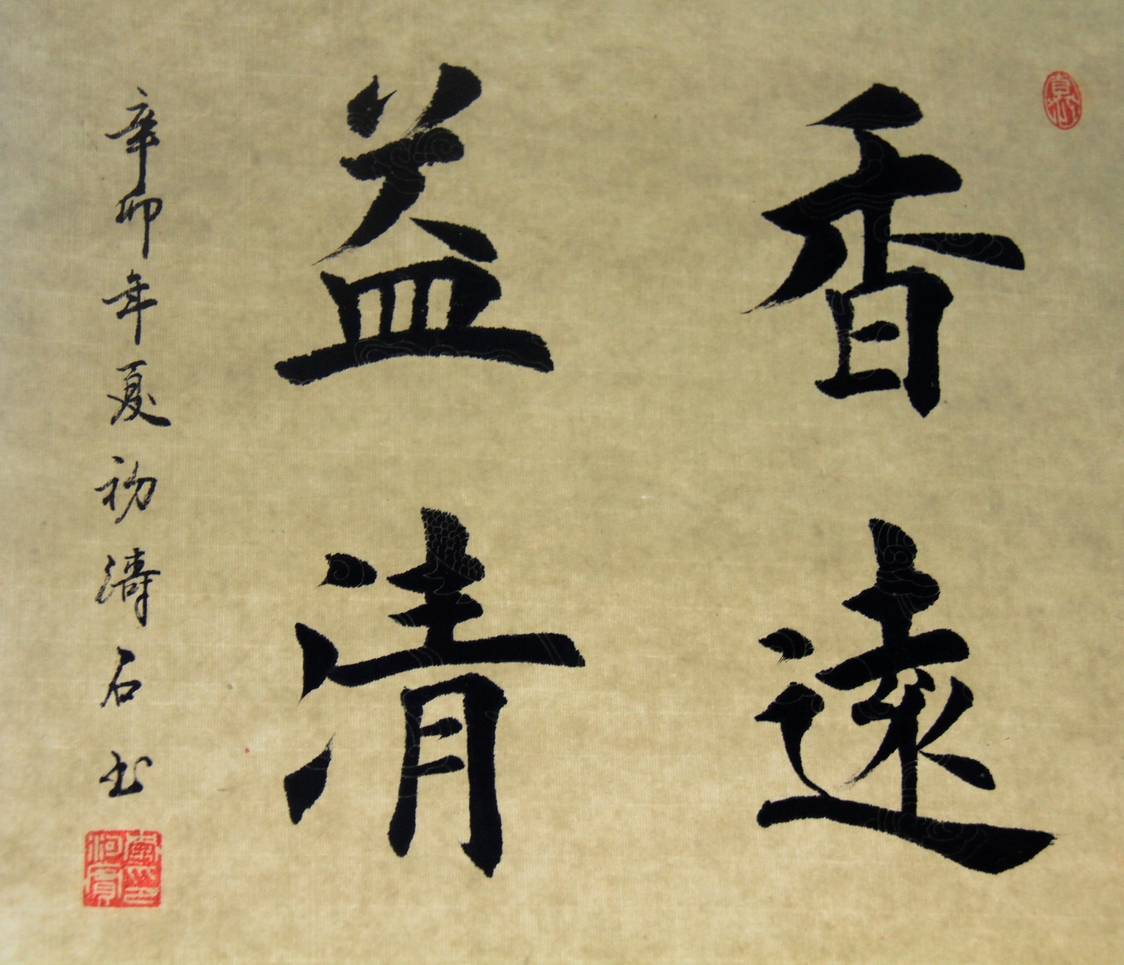 香遠
益清
辛卯年夏初濤石书